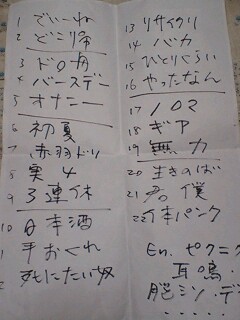 1 でぃーね
2 どこり帝
3 ドロ舟
4 バースデー
5 オナニー
6 初夏
7 赤羽ドリ
8 実 4
9 3連休
10 日本酒
1 手おくれ
死にたい奴
13 リサイクリ
14 バカ
15 ひとりぐらい
16 やったなん
17 ノロマ
18 ギア
19 無力
20 生きのば
21 君 僕
22 日本パンク
En. ピクニ
耳鳴
脳ミソ・デ
・・・・・